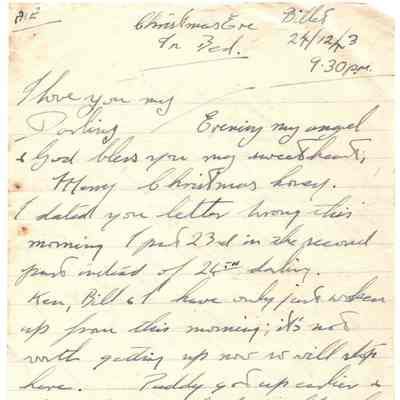 Christmas Eve Billet
In Bed. 24/12/43
9.30 p.m.
I love you my
Darling Evening my angel
& God bless you my sweetheart,
Merry Christmas honey.
I dated you letter wrong this
morning I put 23rd in the second
part instead of 24TH darling.
Ken, Bill & I have only just woken
up from this morning; it's not
worth getting up now so will stop
here. Paddy got up earlier &